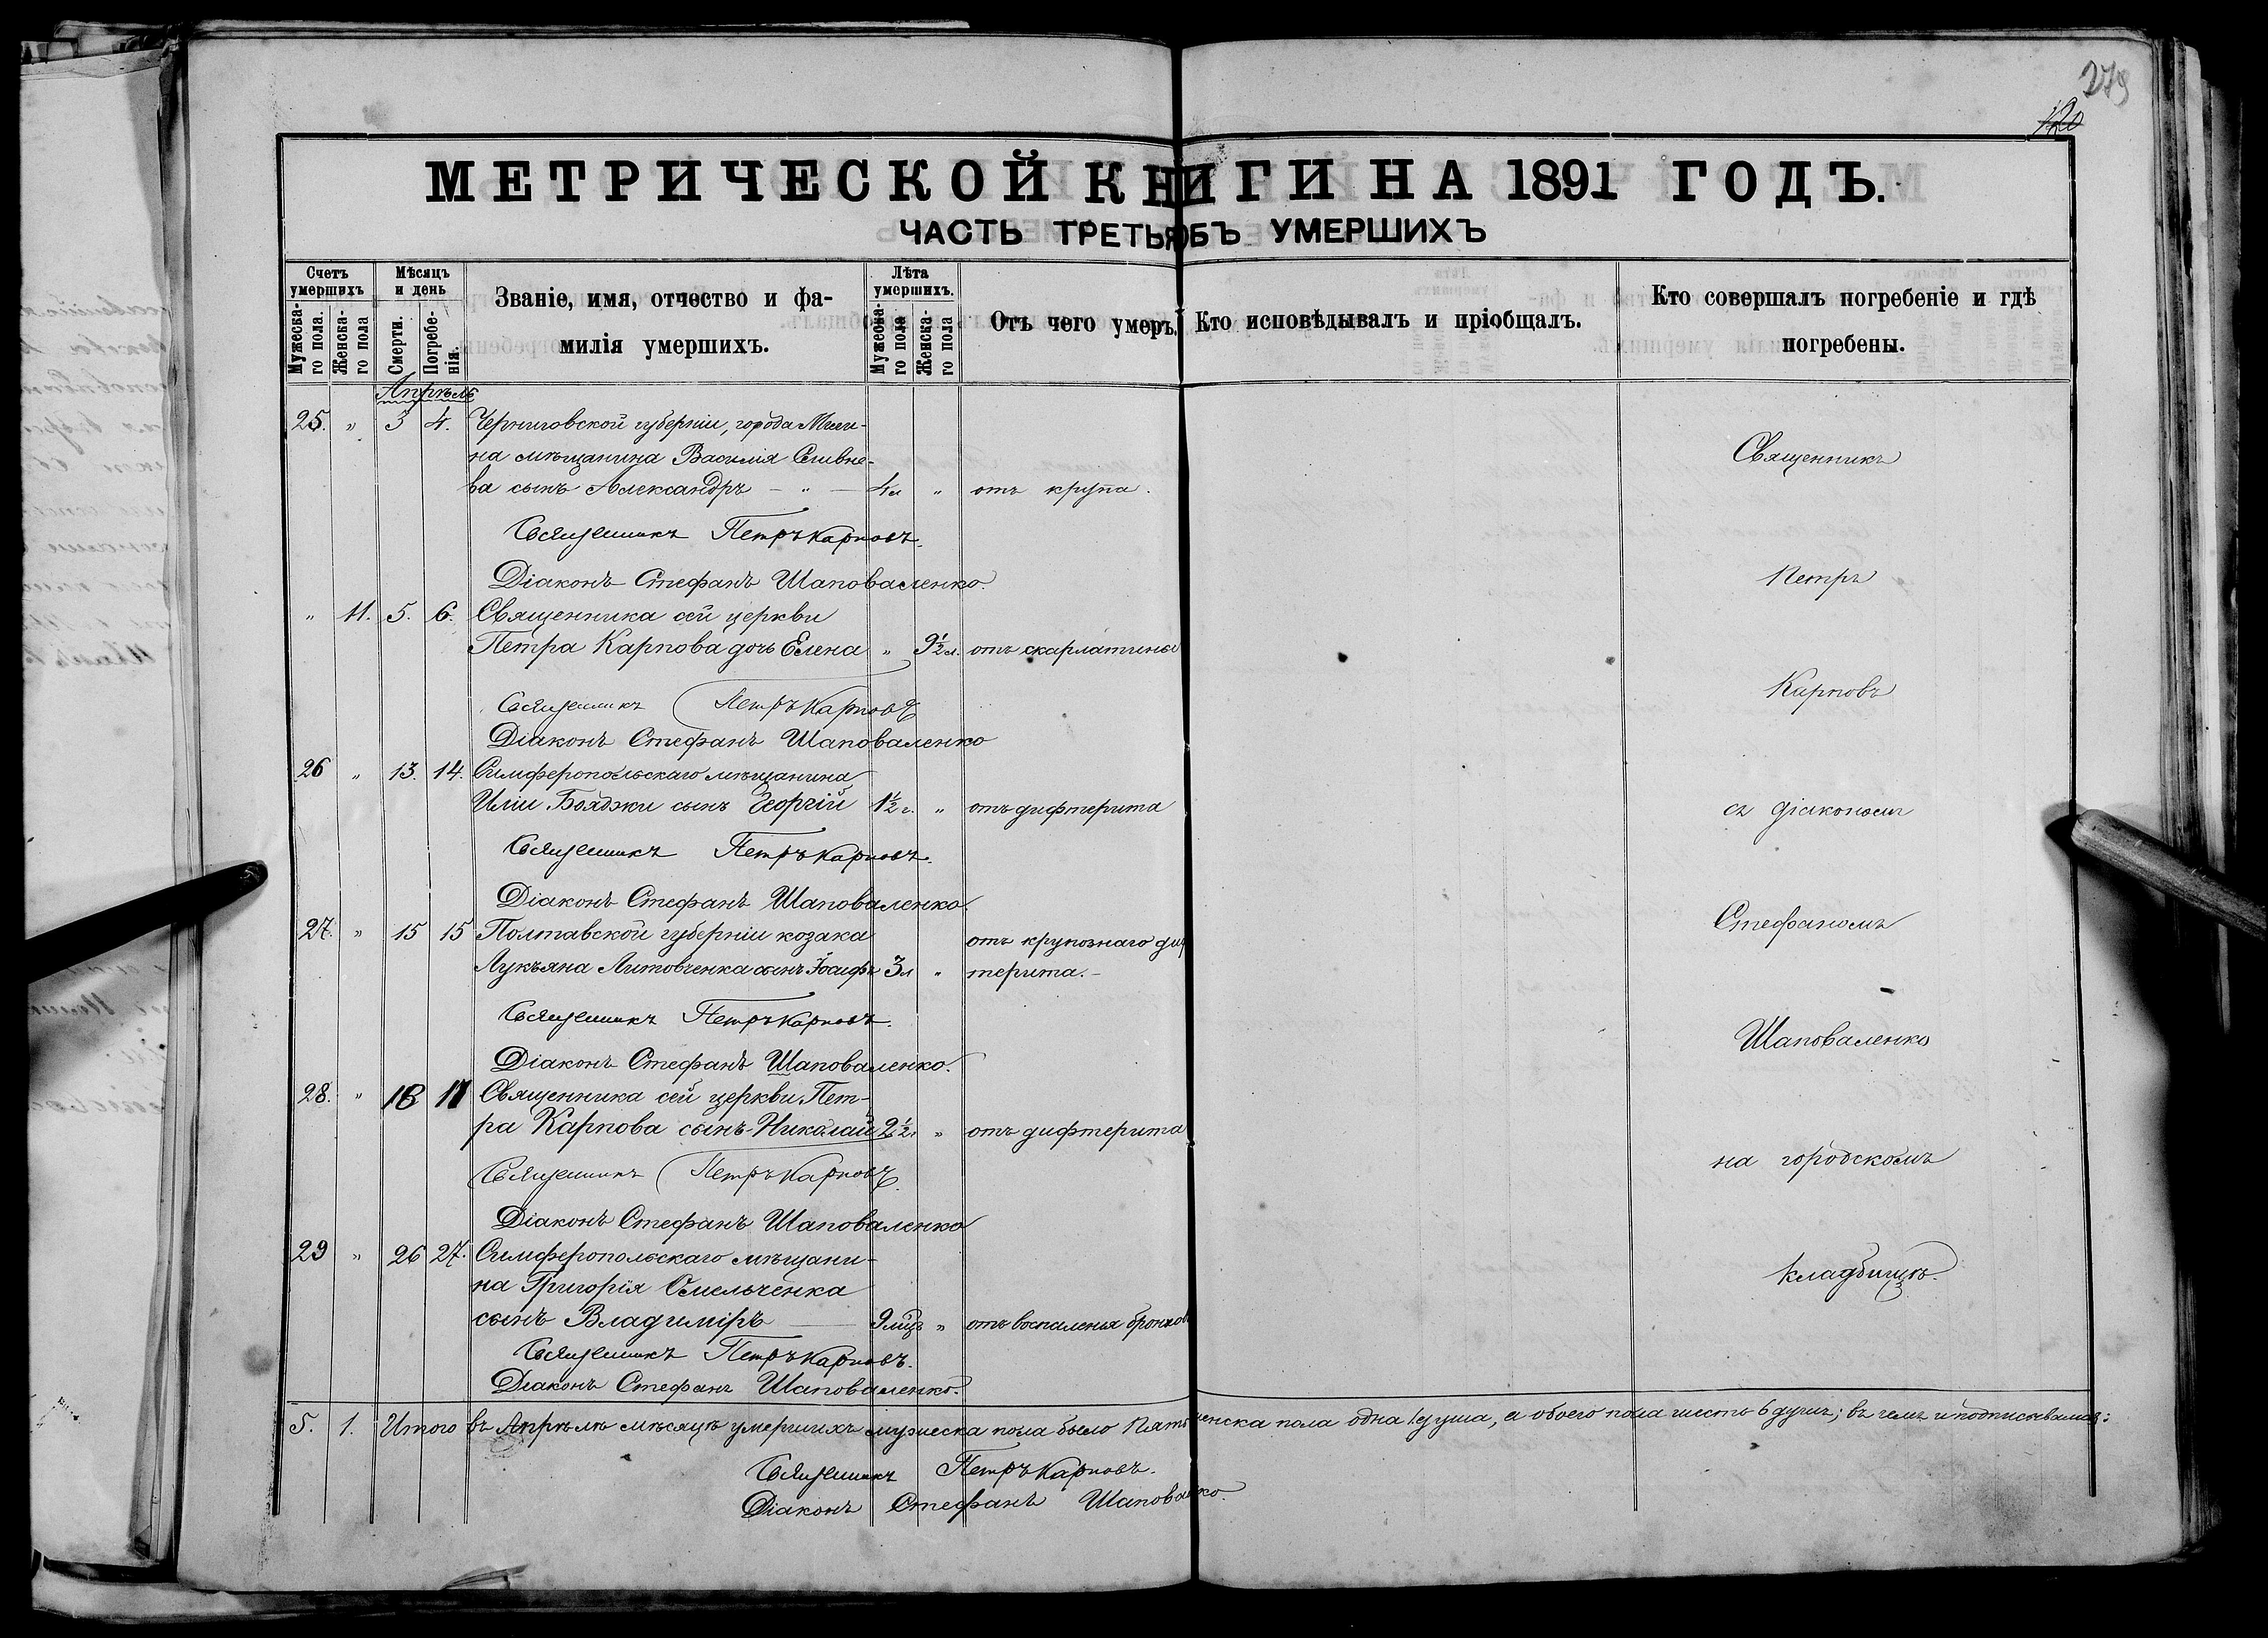 279
120
МЕТРИЧЕСКОЙ КНИГИ НА 1891 ГОДЪ.
ЧАСТЬ ТРЕТЬЯ ОБЪ УМЕРШИХЪ
Счетъ умершихъ
Мужеска-го пола.
Женска-го пола
Мѣсяцъ и день
Смерти.
Погребе-нія.
Званіе, имя, отчество и фа-
милія умершихъ.
Лѣта умершихъ.
Мужеска-го пола
Женска-го пола
Отъ чего умеръ.
Кто исповѣдывалъ и пріобщалъ.
Кто совершалъ погребеніе и гдѣ
погребены.
Апрѣль
25. " 3 4. Черниговской губерніи, города Мгли-
на мѣщанина Василія
ва сынъ Александръ — " — 4 л " отъ крупа.
Священникъ Петръ Карповъ.
Діаконъ Стефанъ Шаповаленко.
" 11. 5. 6. Священника сей церкви
Петра Карпова дочь Елена " 9½ л. отъ скарлатины
Священникъ Петръ Карповъ
Діаконъ Стефанъ Шаповаленко
26 " 13. 14. Симферопольскаго мѣщанина
Иліи Бояджи сынъ Георгій 1½ г. " отъ дифтерита
Священникъ Петръ Карповъ.
Діаконъ Стефанъ Шаповаленко.
27. " 15 15 Полтавской губерніи козака отъ крупознаго диф
Лукьяна Литовченка сынъ Іосифъ 3 л " терита.—
Священникъ Петръ Карповъ.
Діаконъ Стефанъ Шаповаленко.
28. " 16 17 Священника сей церкви Пет-
ра Карпова сынъ Николай 2½ " отъ дифтерита
Священникъ Петръ Карповъ.
Діаконъ Стефанъ Шаповаленко
29 " 26 27. Симферопольскаго мѣщани-
на Григорія Омельченка
сынъ Владиміръ — 9 мцъ " отъ воспаленья бронховъ
Священникъ Петръ Карповъ.
Діаконъ Стефанъ Шаповаленко.
Священникъ
Петръ
Карповъ
съ діакономъ
Стефаномъ
Шаповаленко
на городскомъ
кладбищѣ.
5. 1. Итого въ Апрѣлѣ мѣсяцѣ умершихъ мужеска пола было пять женска пола одна 1 душа, а обоего пола шесть 6 душъ; въ чемъ и подписываемся:
Священникъ Петръ Карповъ.
Діаконъ Стефанъ Шаповаленко.